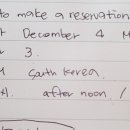 to make a reservation
December 4 M
3.
South Korea.
after noon /